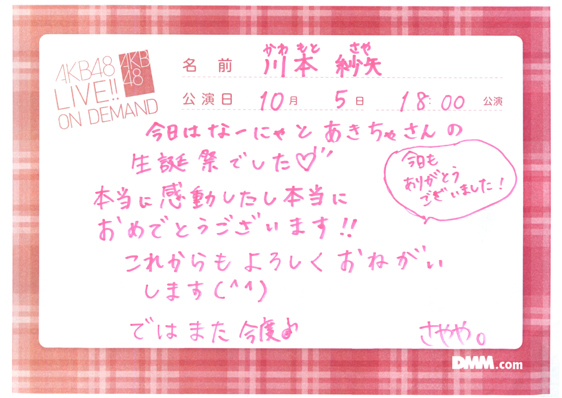 AKB48
LIVE!!
ON DEMAND
AKB
48
かわ もと さや
名前 川本 紗矢
公演日 10月 5日 18:00 公演
今日はなーにゃとあきちゃさんの
生誕祭でした♡''
本当に感動したし本当に
おめでとうございます!!
これからもよろしくおねがい
します(^^)
ではまた今度♪
今日も
ありがとう
ございました!
さやや。
DMM.com